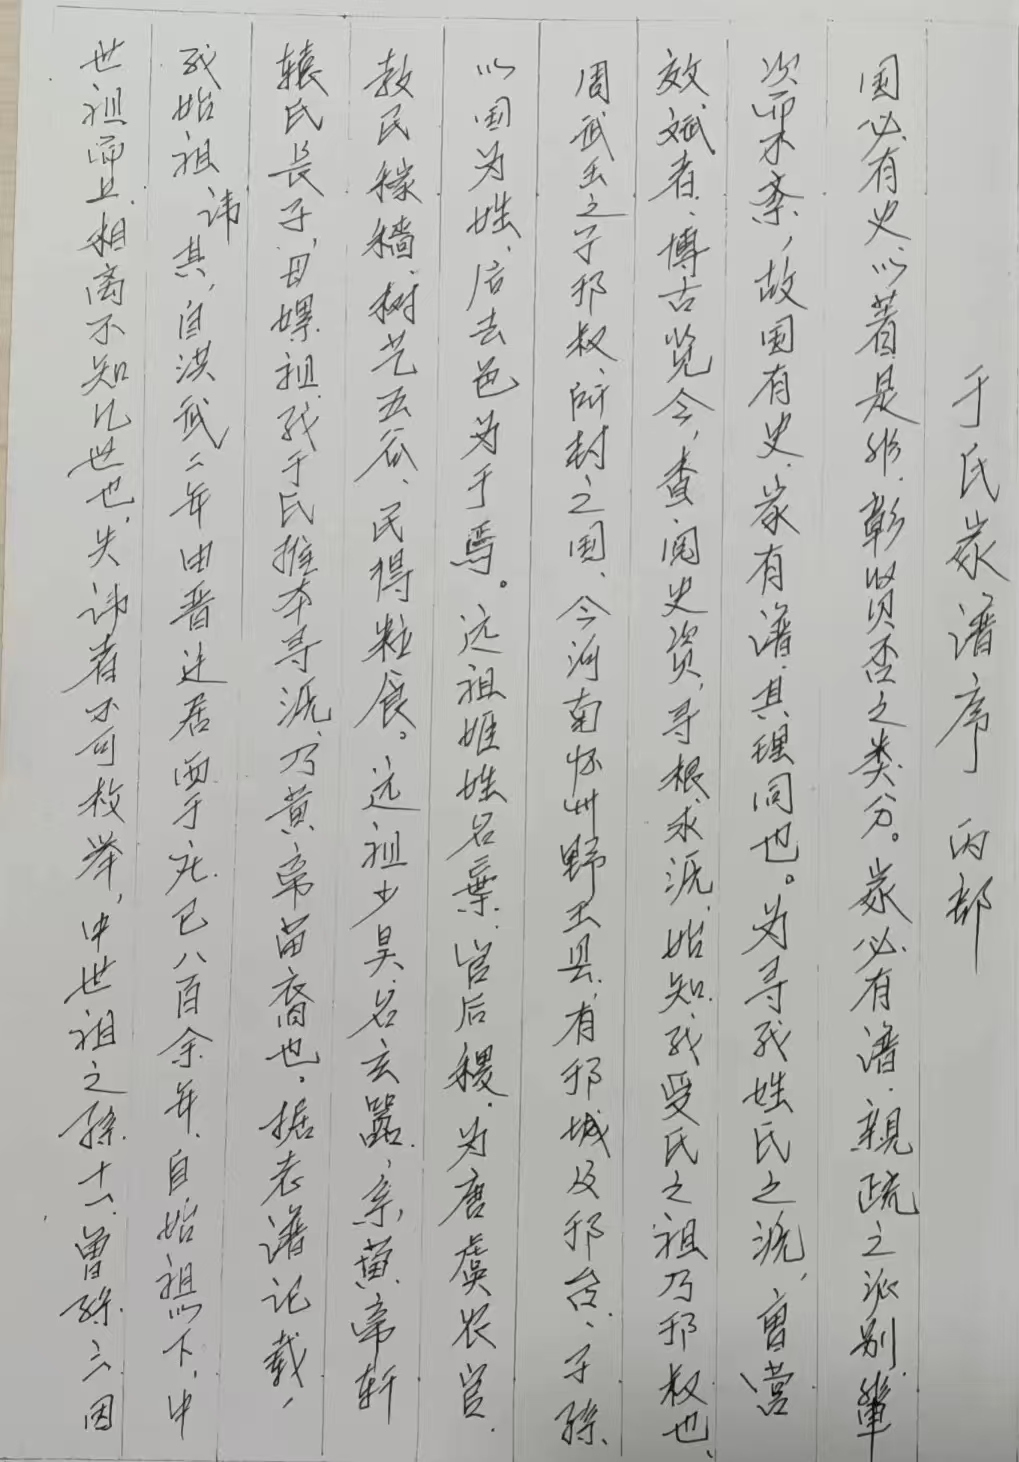 于氏家谱序 丙部
国必有史、以著是非、彰贤否之类分。家必有谱、亲疏之派别、辈
次而不紊，故国有史、家有谱、其理同也。为寻我姓氏之源，曾营
效斌者、博古览今，查阅史资，寻根求源、始知我受氏之祖乃邘叔也、
周武王之子邘叔、所封之国、今河南怀州野王县，有邘城及邘台、子孙
以国为姓、后去邑为于焉。远祖姬姓名棄、官后稷、为唐虞农官、
教民稼穑、树艺五谷、民得粒食。远祖少昊、名玄嚣、系黄帝轩
辕氏长子，母嫘祖、我于氏推本寻源、乃黄帝苗裔也。据老谱记载，
我始祖讳其，自洪武二年由晋迁居西于庄、已八百余年、自始祖以下，中
世祖而上、相离不知几世也、失讳者不可枚举，中世祖之孫十一、曾孫三因